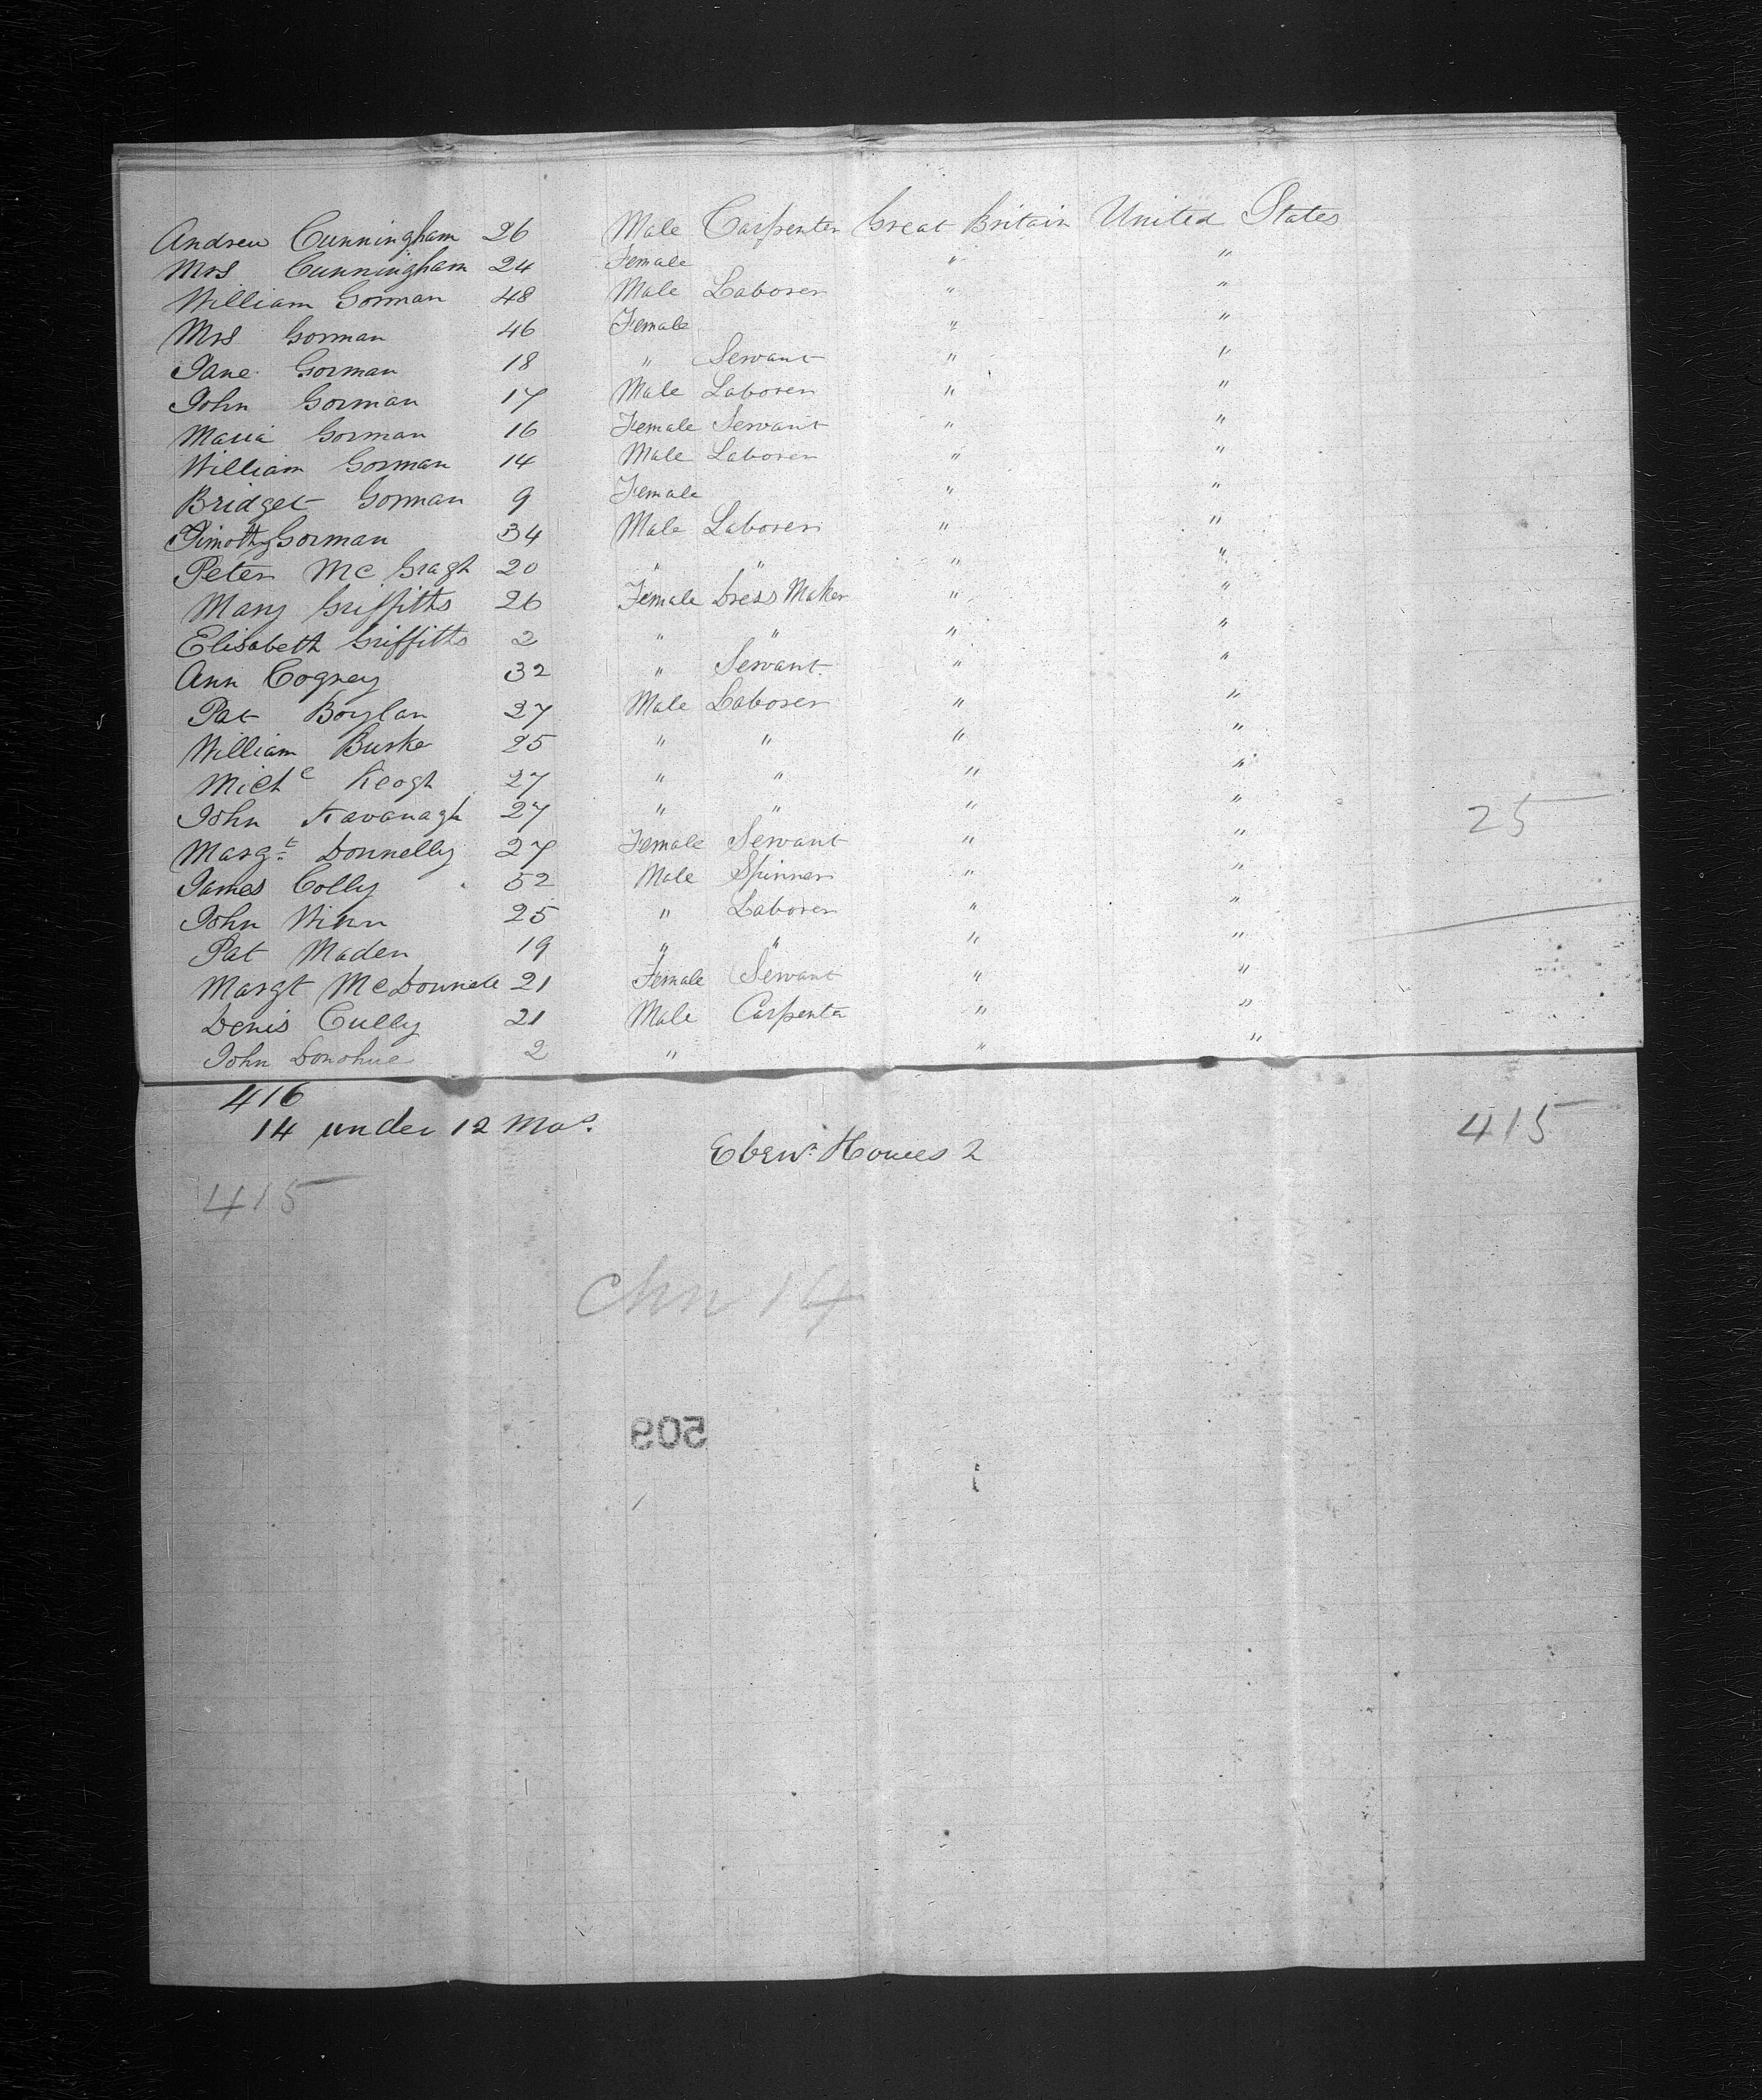 Andrew Cunningham 26 Male Carpenter Great Britain United States
Mrs Cunningham 24 Female " "
William Gorman 48 Male Laborer " "
Mrs Gorman 46 Female " "
Jane Gorman 18 " Servant " "
John Gorman 17 Male Laborer " "
Maria Gorman 16 Female Servant " "
William Gorman 14 Male Laborer " "
Bridget Gorman 9 Female " "
Timothy Gorman 34 Male Laborer " "
Peter Mc Gragh 20 " " " "
Mary Griffiths 26 Female Dress Maker " "
Elisabeth Griffiths 2 " " " "
Ann Cogney 32 " Servant " "
Pat Boylan 27 Male Laborer " "
William Burke 25 " " " "
Michl Keogh 27 " " " "
John Kavanagh 27 " " " " 25
Margt Donnelly 27 Female Servant " "
James Colly 52 Male Spinner " "
John Winn 25 " Laborer " "
Pat Maden 19 " " " "
Margt McDonnell 21 Female Servant " "
Denis Cully 21 Male Carpenter " "
John Donohue 2 " " "
416
14 under 12 Mos. 415
Ebenr. Howes 2
415
Chn 14
509